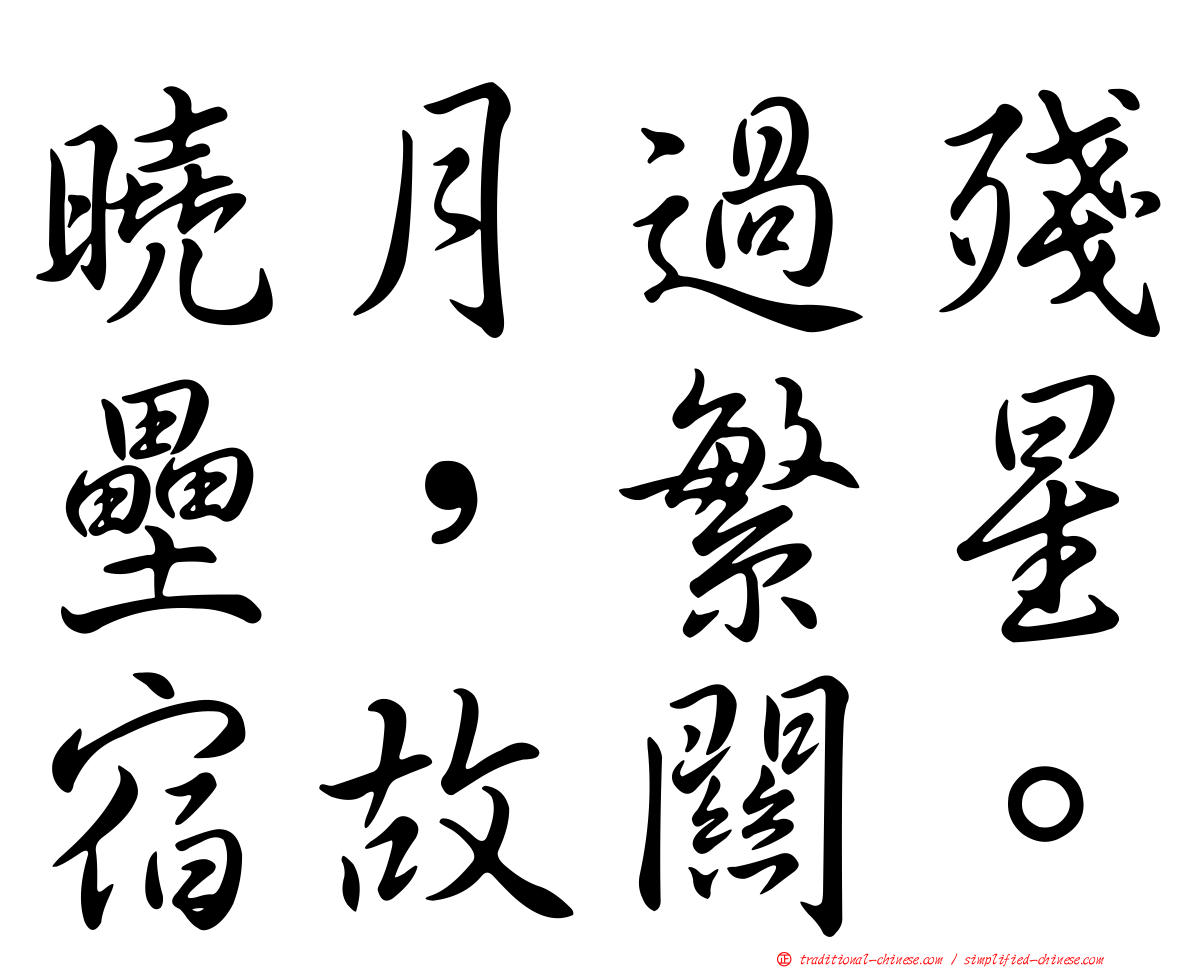 曉月過殘
壘，繁星
宿故關。
正 traditional-chinese.com / simplified-chinese.com